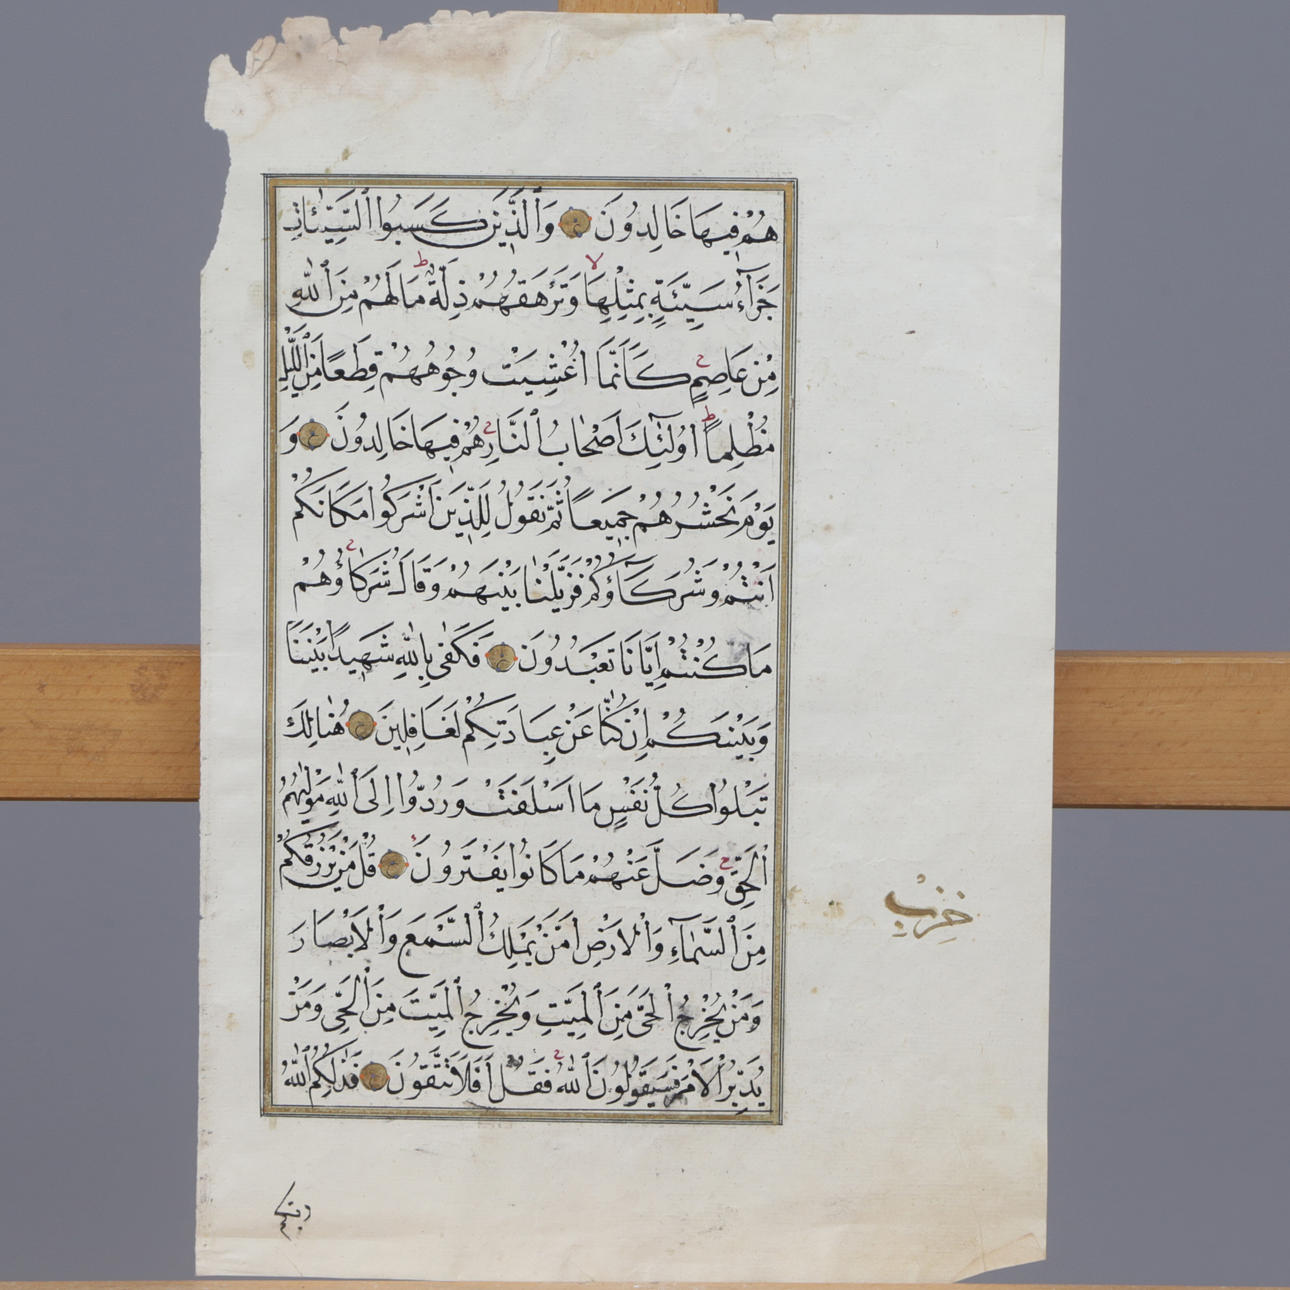 هُمْ فِيهَا خَالِدُونَ وَٱلَّذِينَ كَسَبُوا ٱلسَّيِّئَاتِ
جَزَآءُ سَيِّئَةٍ بِمِثْلِهَا لا وَتَرْهَقُهُمْ ذِلَّةٌ ط مَا لَهُمْ مِنَ ٱللّٰهِ
مِنْ عَاصِمٍ ج كَاَنَّمَا اُغْشِيَتْ وُجُوهُهُمْ قِطَعًا مِنَ ٱلَّيْلِ
مُظْلِماً ط اُولٰٓئِكَ اَصْحَابُ ٱلنَّارِ ج هُمْ فِيهَا خَالِدُونَ وَ
يَوْمَ نَحْشُرُهُمْ جَمِيعاً ثُمَّ نَقُولُ لِلَّذِينَ اَشْرَكُوا مَكَانَكُمْ
اَنْتُمْ وَشُرَكَآؤُكُمْ ج فَزَيَّلْنَا بَيْنَهُمْ وَقَالَ شُرَكَاؤُهُمْ
مَا كُنْتُمْ اِيَّانَا تَعْبُدُونَ فَكَفٰى بِاللّٰهِ شَهِيدًا بَيْنَنَا
وَبَيْنَكُمْ اِنْ كُنَّا عَنْ عِبَادَتِكُمْ لَغَافِلِينَ هُنَالِكَ
تَبْلُوا كُلُّ نَفْسٍ مَا اَسْلَفَتْ وَرُدُّوا اِلَى ٱللّٰهِ مَوْلٰيهُمُ
ٱلْحَقِّ ج وَضَلَّ عَنْهُمْ مَا كَانُوا يَفْتَرُونَ قُلْ مَنْ يَرْزُقُكُمْ
مِنَ ٱلسَّمَآءِ وَٱلْاَرْضِ اَمَّنْ يَمْلِكُ ٱلسَّمْعَ وَٱلْاَبْصَارَ
وَمَنْ يُخْرِجُ ٱلْحَىَّ مِنَ ٱلْمَيِّتِ وَيُخْرِجُ ٱلْمَيِّتَ مِنَ ٱلْحَىِّ وَمَنْ
يُدَبِّرُ ٱلْاَمْرَ فَسَيَقُولُونَ ٱللّٰهُ ج فَقُلْ اَفَلَا تَتَّقُونَ فَذٰلِكُمُ ٱللّٰهُ
حِزْبْ
ربكم